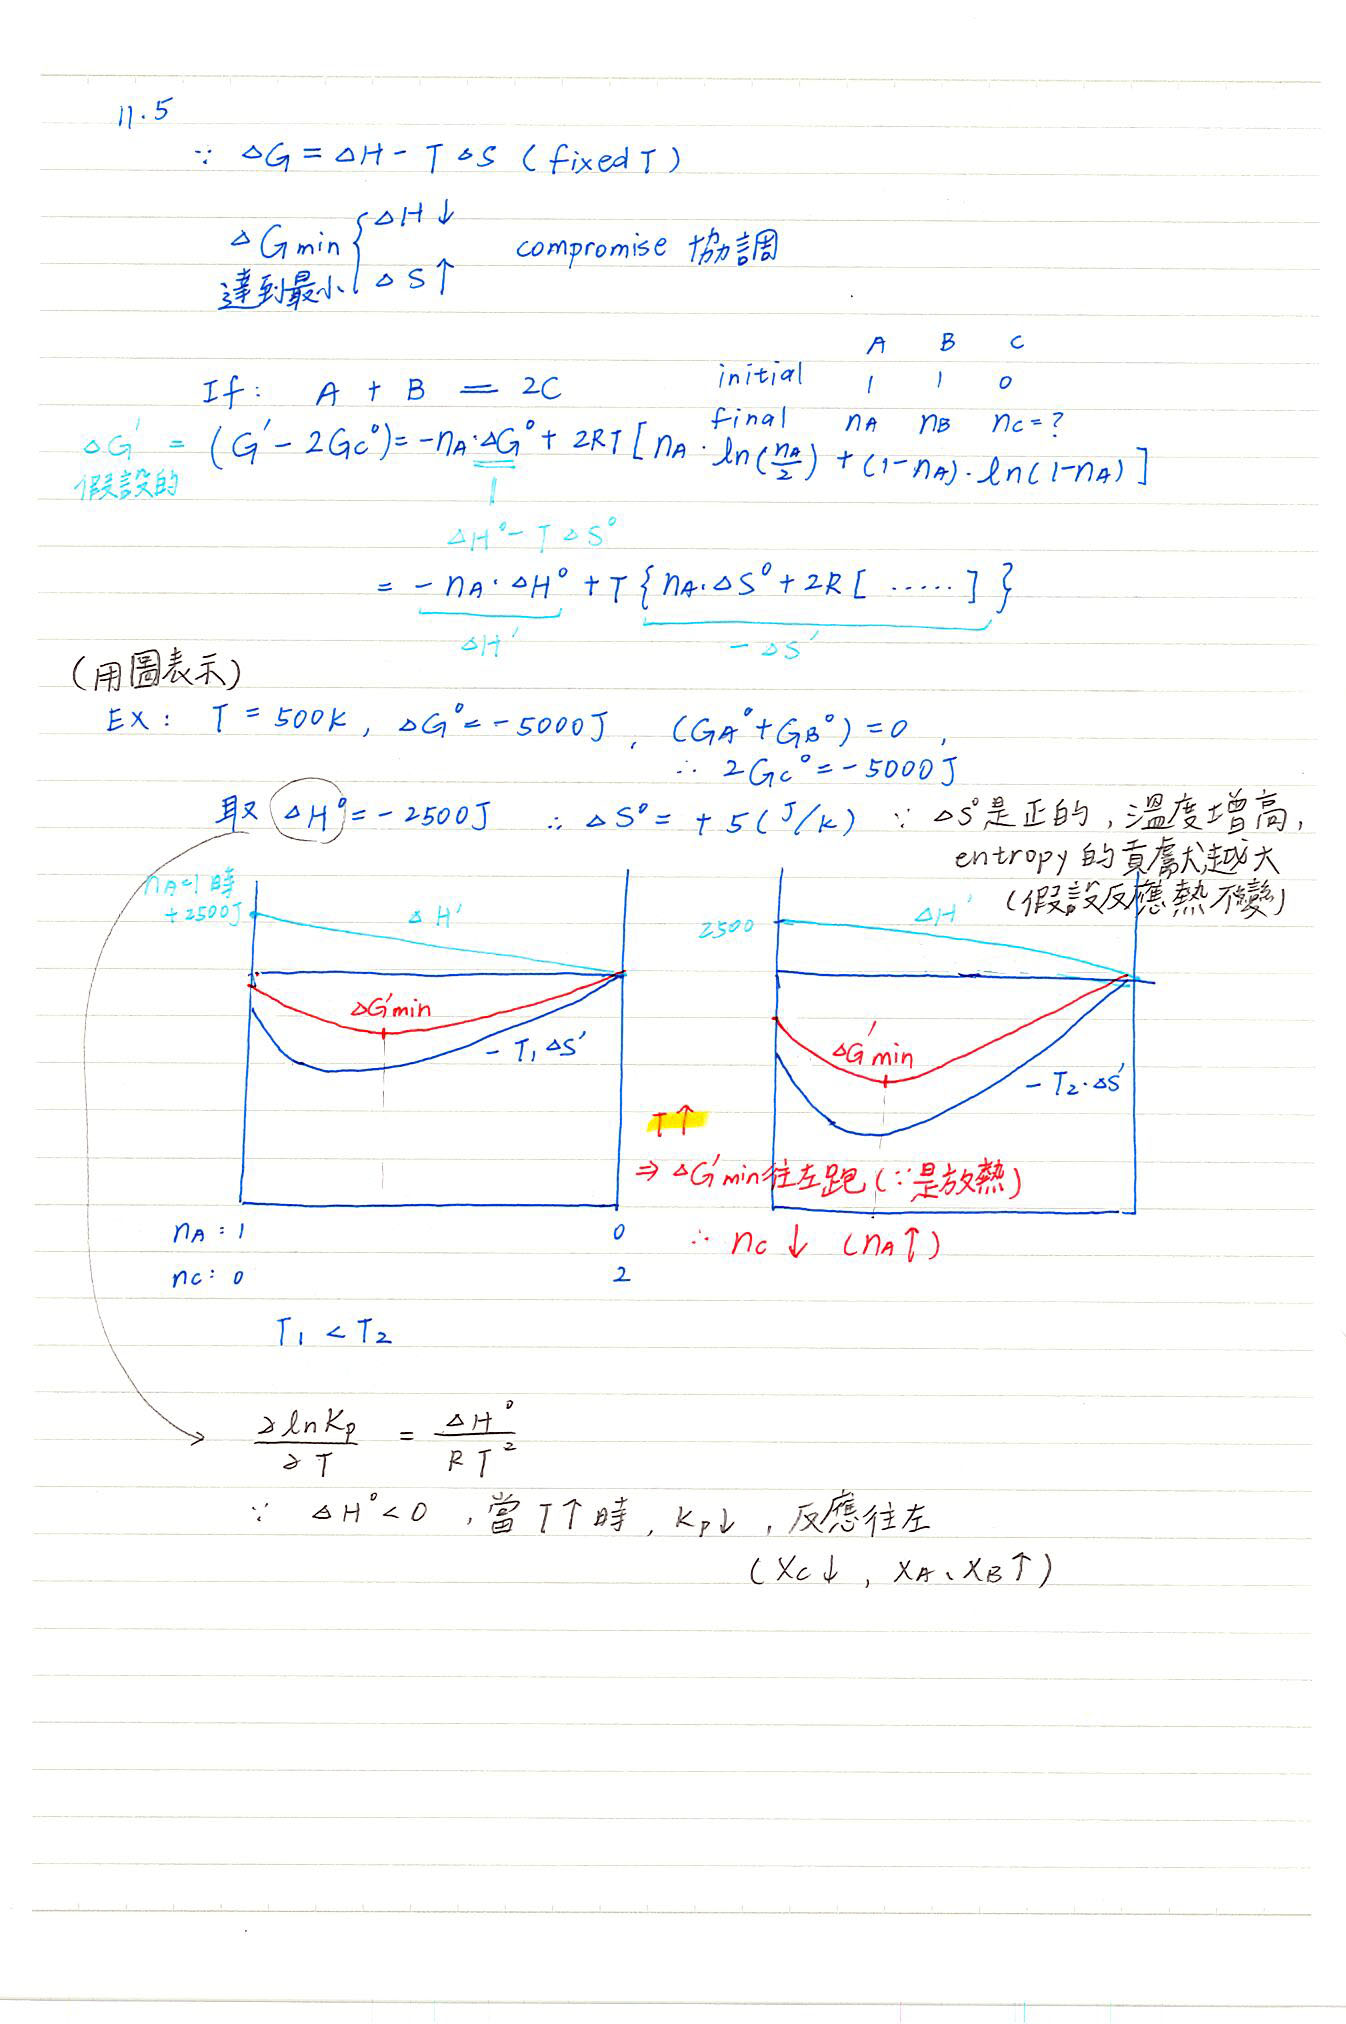 11.5
∵ ΔG = ΔH - TΔS (fixed T)
ΔGmin { ΔH↓
達到最小 ΔS↑
compromise 協調
A B C
initial 1 1 0
final nA nB nC = ?
If: A + B = 2C
ΔG' = (G' - 2GC°) = -nA·ΔG° + 2RT[nA·ln(nA/2) + (1-nA)·ln(1-nA)]
假設的
ΔH° - TΔS°
= -nA·ΔH° + T{nA·ΔS° + 2R[ ..... ]}
ΔH' -ΔS'
(用圖表示)
EX: T = 500K, ΔG° = -5000J, (GA° + GB°) = 0,
∴ 2GC° = -5000J
取 ΔH° = -2500J ∴ ΔS° = +5 (J/K) ∵ ΔS°是正的,溫度增高,
entropy的貢獻越大
(假設反應熱不變)
nA=1時
+2500J
ΔH'
ΔG'min
-T1ΔS'
2500
ΔH'
ΔG'min
-T2·ΔS'
T↑
⇒ ΔG'min往左跑 (∵是放熱)
∴ nC↓ (nA↑)
nA: 1 0
nC: 0 2
T1 < T2
∂lnKp/∂T = ΔH°/RT²
∵ ΔH° < 0 ,當T↑時, Kp↓, 反應往左
(XC↓, XA、XB↑)